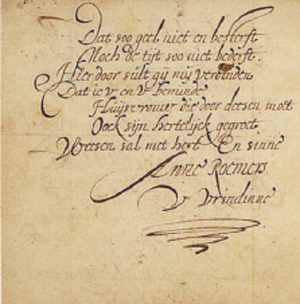 Dat soo geel niet en besterft
Noch de tijt soo niet bederft.
Hier door sult gij mij verbinden
Dat ic v en v beminde
Huijsvrouwe die door deesen mott
Oock sijn hertelijck gegroet.
Weesen sal met hert En sinne
Anna Roemers
V Vrindinne